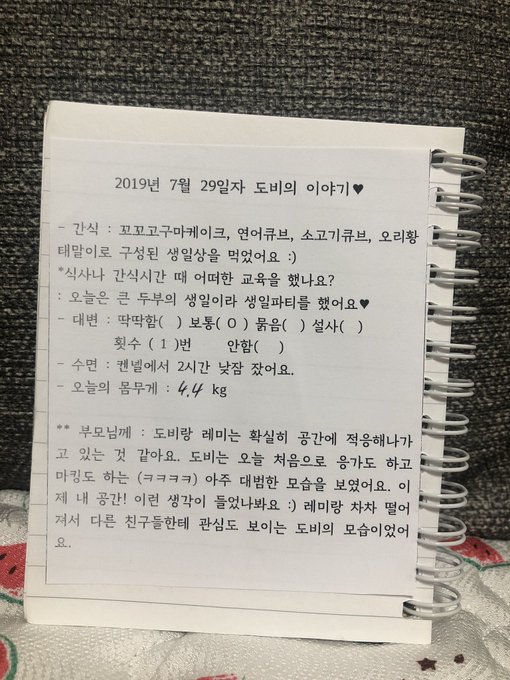 2019년 7월 29일자 도비의 이야기♥
- 간식 : 꼬꼬고구마케이크, 연어큐브, 소고기큐브, 오리황
태말이로 구성된 생일상을 먹었어요 :)
*식사나 간식시간 때 어떠한 교육을 했나요?
: 오늘은 큰 두부의 생일이라 생일파티를 했어요♥
- 대변 : 딱딱함( ) 보통( O ) 묽음( ) 설사( )
횟수 ( 1 )번 안함( )
- 수면 : 켄넬에서 2시간 낮잠 잤어요.
- 오늘의 몸무게 : 4.4 kg
** 부모님께 : 도비랑 레미는 확실히 공간에 적응해나가
고 있는 것 같아요. 도비는 오늘 처음으로 응가도 하고
마킹도 하는 (ㅋㅋㅋㅋ) 아주 대범한 모습을 보였어요. 이
제 내 공간! 이런 생각이 들었나봐요 :) 레미랑 차차 떨어
져서 다른 친구들한테 관심도 보이는 도비의 모습이었어
요.